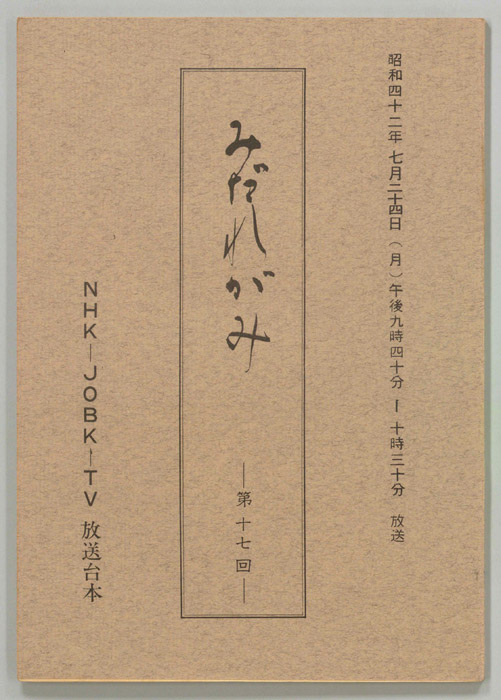 昭和四十二年 七月二十四日（月）午後九時四十分ー十時三十分 放送
みだれがみ
―第十七回―
NHK―JOBK―TV 放送台本